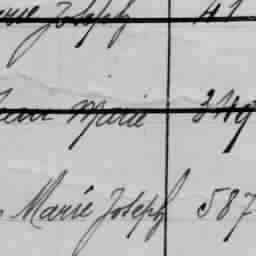 Joseph 41
Marie 349
Marie Joseph 587